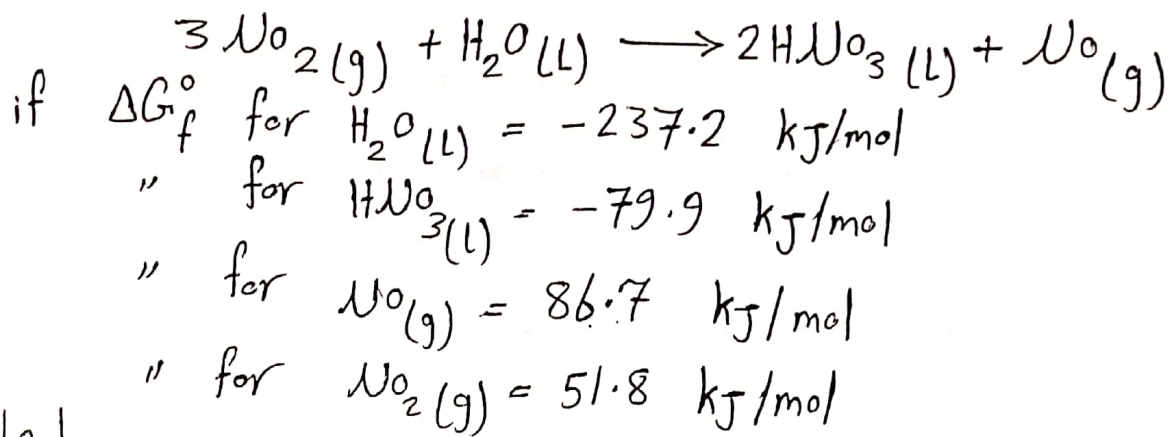 3 NO₂(g) + H₂O(L) ⟶ 2HNO₃(L) + NO(g)
if ΔG°f for H₂O(L) = -237.2 kJ/mol
" for HNO₃(L) = -79.9 kJ/mol
" for NO(g) = 86.7 kJ/mol
" for NO₂(g) = 51.8 kJ/mol